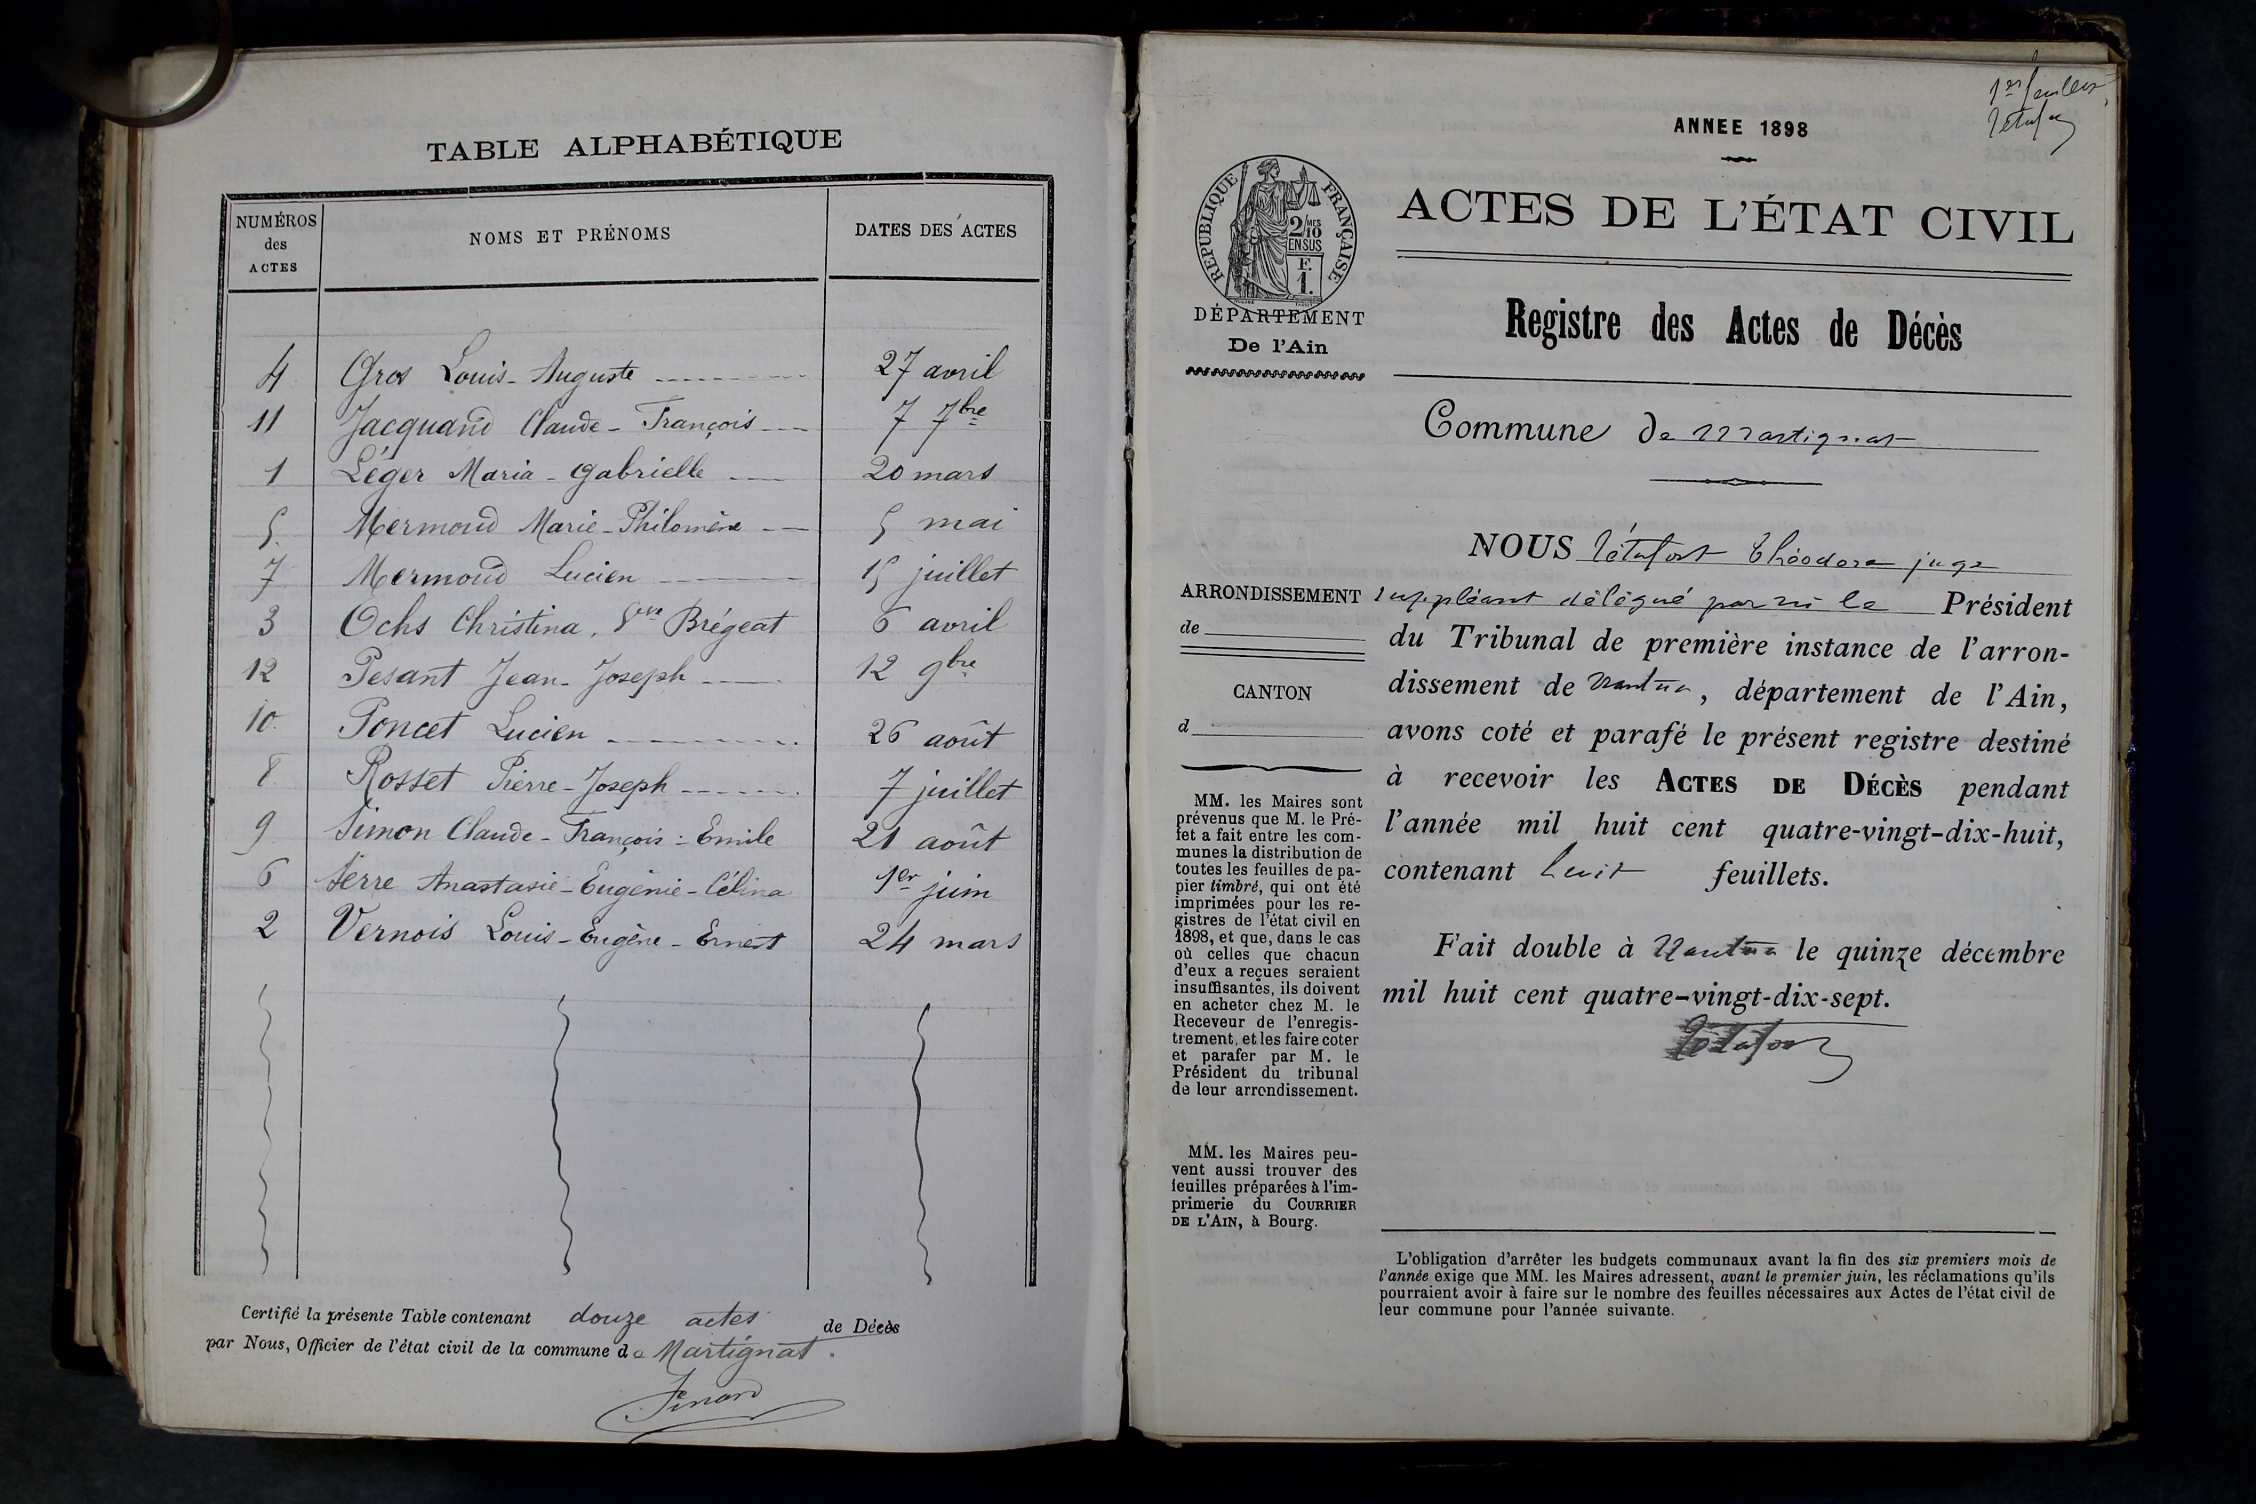 TABLE ALPHABÉTIQUE
NUMÉROS des ACTES
NOMS ET PRÉNOMS
DATES DES ACTES
4 Gros Louis-Auguste 27 avril
11 Jacquand Claude-François 7 7bre
1 Léger Maria-Gabrielle 20 mars
5 Mermoud Marie-Philomène 5 mai
7 Mermoud Lucien 15 juillet
3 Ochs Christina, Vve Brégeat 6 avril
12 Pesant Jean-Joseph 12 9bre
10 Poncet Lucien 26 août
8 Rosset Pierre-Joseph 7 juillet
9 Simon Claude-François-Emile 21 août
6 Serre Anastasie-Eugénie-Célina 1er juin
2 Vernois Louis-Eugène-Ernest 24 mars
Certifié la présente Table contenant douze actes de Décès
par Nous, Officier de l'état civil de la commune de Martignat.
1er feuillet
ANNEE 1898
RÉPUBLIQUE FRANÇAISE
2/10 MES
EN SUS
F.
1.
DÉPARTEMENT
De l'Ain
ACTES DE L'ÉTAT CIVIL
Registre des Actes de Décès
Commune de Martignat
NOUS Tétafort Théodore juge
suppléant délégué par M le Président
du Tribunal de première instance de l'arron-
dissement de Nantua, département de l'Ain,
avons coté et parafé le présent registre destiné
à recevoir les ACTES DE DÉCÈS pendant
l'année mil huit cent quatre-vingt-dix-huit,
contenant huit feuillets.
Fait double à Nantua le quinze décembre
mil huit cent quatre-vingt-dix-sept.
ARRONDISSEMENT
de
CANTON
d
MM. les Maires sont
prévenus que M. le Pré-
fet a fait entre les com-
munes la distribution de
toutes les feuilles de pa-
pier timbré, qui ont été
imprimées pour les re-
gistres de l'état civil en
1898, et que, dans le cas
où celles que chacun
d'eux a reçues seraient
insuffisantes, ils doivent
en acheter chez M. le
Receveur de l'enregis-
trement, et les faire coter
et parafer par M. le
Président du tribunal
de leur arrondissement.
MM. les Maires peu-
vent aussi trouver des
feuilles préparées à l'im-
primerie du COURRIER
DE L'AIN, à Bourg.
L'obligation d'arrêter les budgets communaux avant la fin des six premiers mois de
l'année exige que MM. les Maires adressent, avant le premier juin, les réclamations qu'ils
pourraient avoir à faire sur le nombre des feuilles nécessaires aux Actes de l'état civil de
leur commune pour l'année suivante.